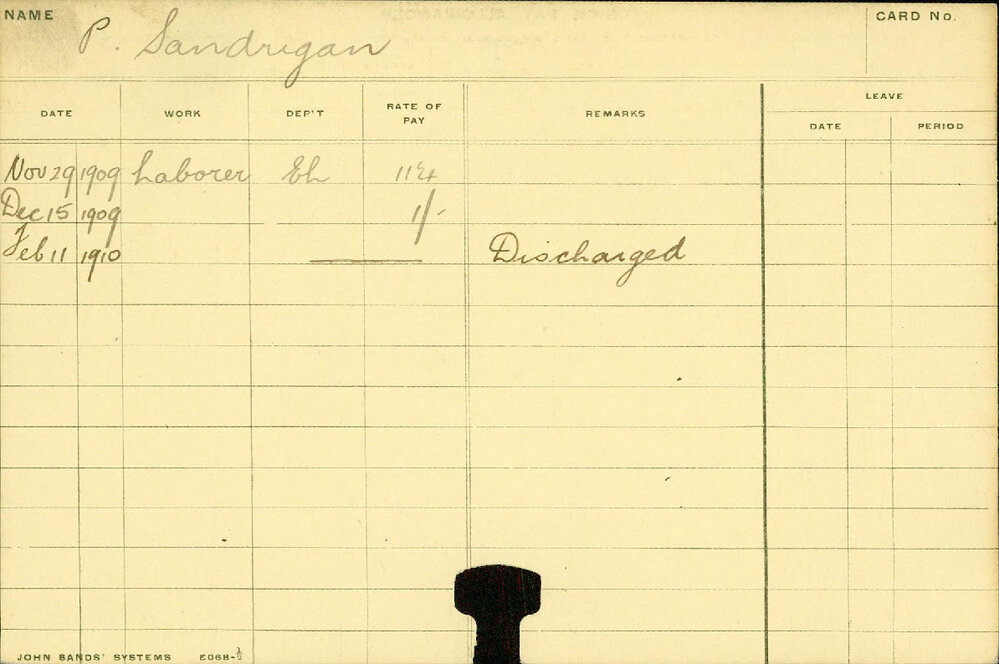 NAME P. Sandrigan CARD No.
DATE WORK DEP'T RATE OF PAY REMARKS LEAVE
DATE PERIOD
Nov 29 1909 Laborer Eh
Dec 15 1909 1/-
Feb 11 1910 Discharged
JOHN SANDS' SYSTEMS E068-½